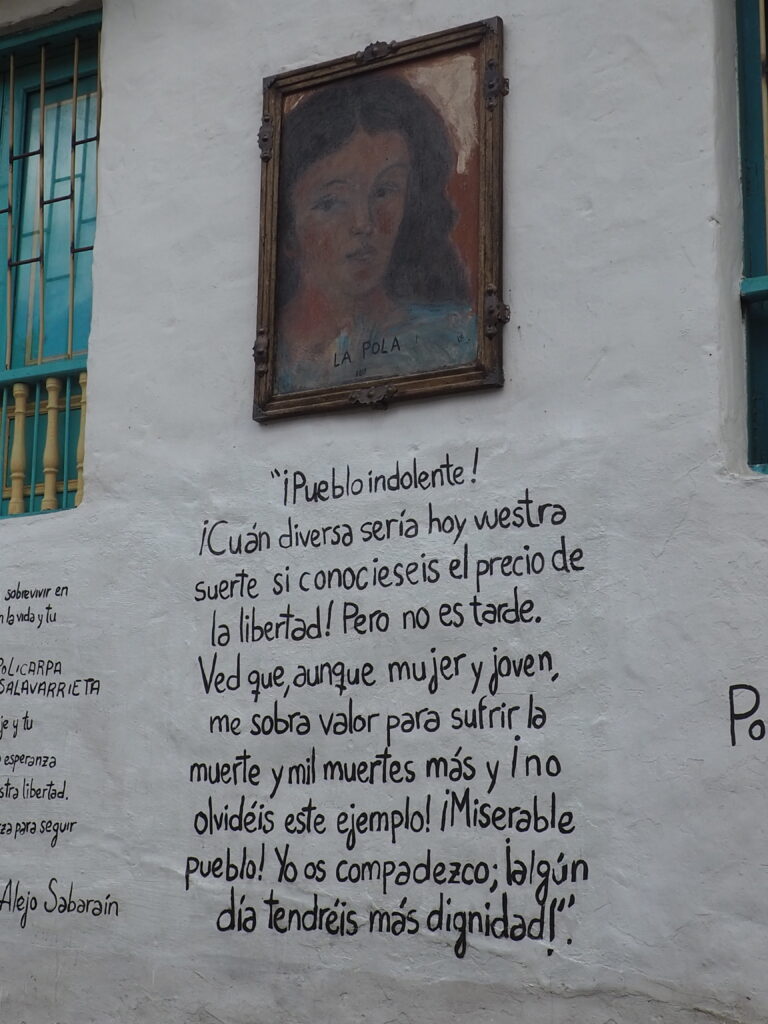 LA POLA
"¡Pueblo indolente!
¡Cuán diversa sería hoy vuestra
suerte si conocieseis el precio de
la libertad! Pero no es tarde.
Ved que, aunque mujer y joven,
me sobra valor para sufrir la
muerte y mil muertes más y ¡no
olvidéis este ejemplo! ¡Miserable
pueblo! Yo os compadezco; ¡algún
día tendréis más dignidad!".
sobrevivir en
la vida y tu
POLICARPA
SALAVARRIETA
y tu
esperanza
libertad.
para seguir
Alejo Sabaraín
Po